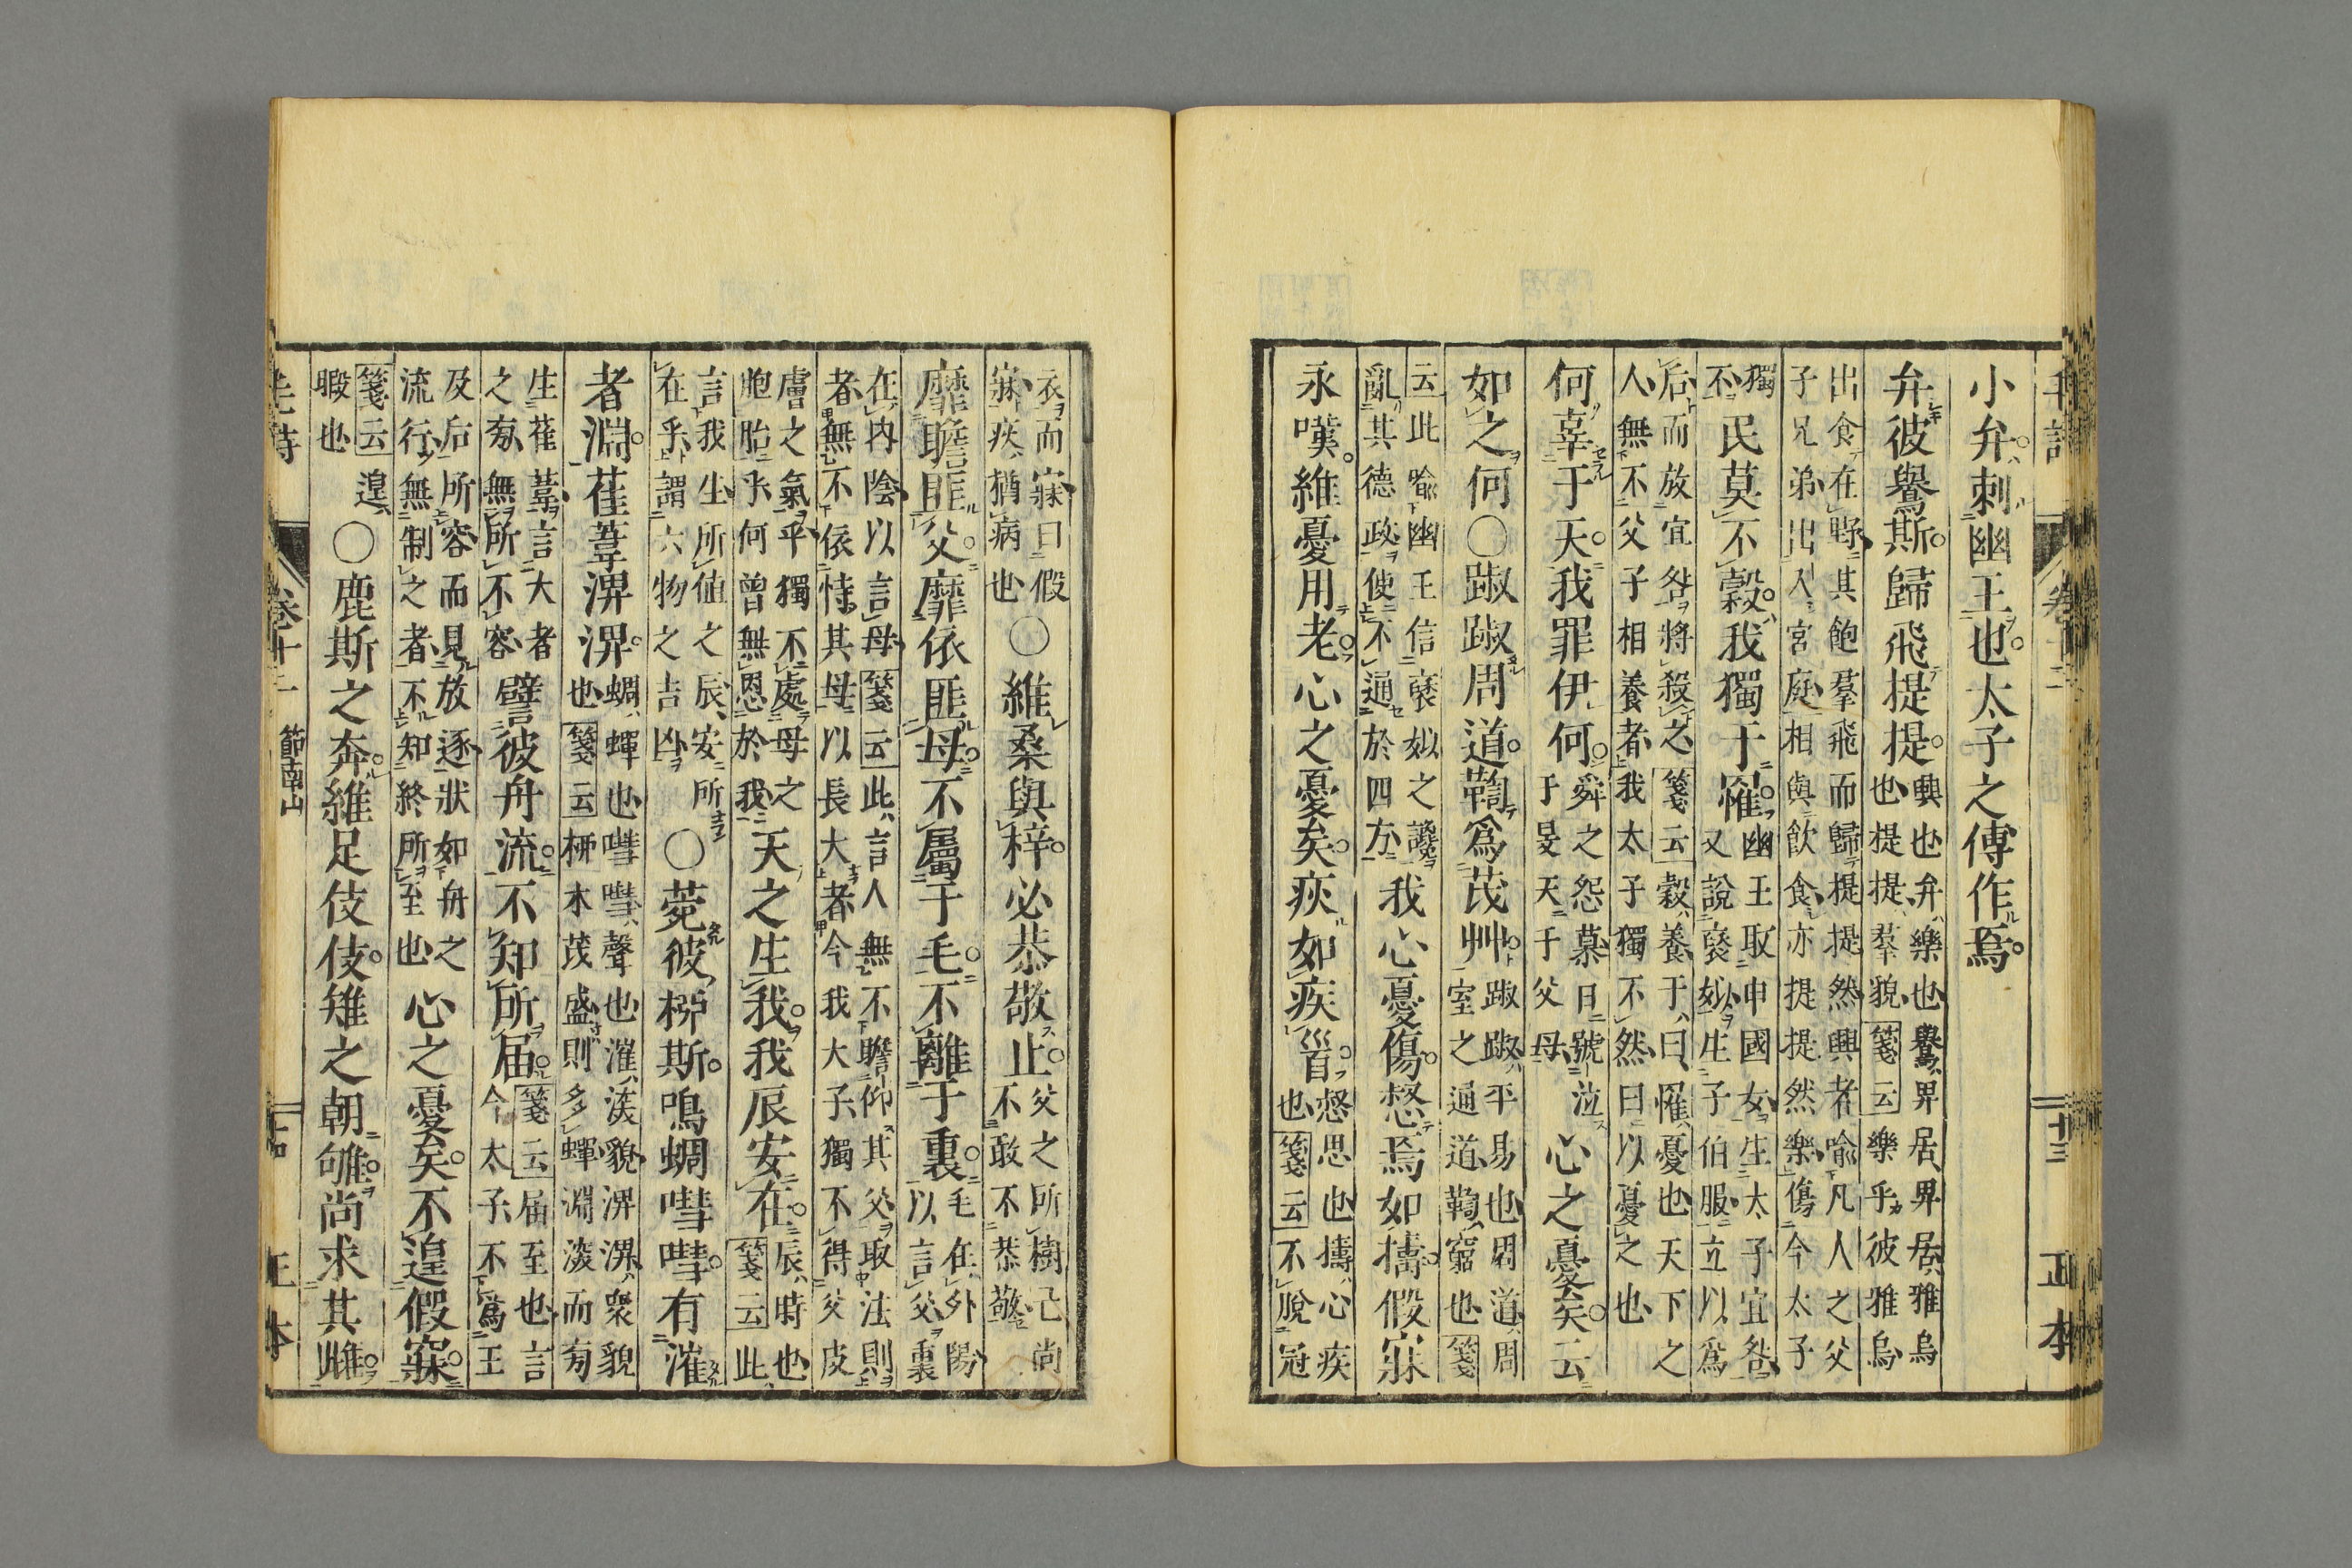 毛詩 卷十二 正本
小弁刺幽王也太子之傅作焉
弁彼鸒斯歸飛提提興也弁樂也鸒卑居卑居雅烏也提提羣貌箋云樂乎彼雅烏
出食在野其飽羣飛而歸提提然興者喻凡人之父子兄弟出入宮庭相與飲食亦提提然樂傷今太子
獨不民莫不穀我獨于罹幽王取申國女生太子宜咎又說襃姒生子伯服立以爲
后而放宜咎將殺之箋云穀養于曰罹憂也天下之人無不父子相養者我太子獨不然曰以憂之也
何辜于天我罪伊何舜之怨慕日號泣于旻天于父母心之憂矣云
如之何○踧踧周道鞫爲茂艸踧踧平易也周道周室之通道鞫窮也箋
云此喻幽王信襃姒之讒亂其德政使不通於四方我心憂傷惄焉如擣假寐
永嘆維憂用老心之憂矣疢如疾首惄思也擣心疾也箋云不脫冠
衣而寐曰假寐疢猶病也○維桑與梓必恭敬止父之所樹己尚不敢不恭敬
靡瞻匪父靡依匪母不屬于毛不離于裏毛在外陽以言父裏
在內陰以言母箋云此言人無不瞻仰其父取法則者無不依恃其母以長大者今我大子獨不得父皮
膚之氣乎獨不處母之胞胎乎何曾無恩於我天之生我我辰安在辰時也箋云此
言我生所値之辰安所在乎謂六物之吉凶○菀彼桺斯鳴蜩嘒嘒有漼
者淵萑葦淠淠蜩蟬也嘒嘒聲也漼㴱貌淠淠衆貌也箋云桺木茂盛則多蟬淵㴱而旁
生萑葦言大者之旁無所不容譬彼舟流不知所屆箋云屆至也言今太子不爲王
及后所容而見放逐狀如舟之流行無制之者不知終所至也心之憂矣不遑假寐
箋云遑暇也○鹿斯之奔維足伎伎雉之朝雊尚求其雌
毛詩 卷十二 節南山 正本